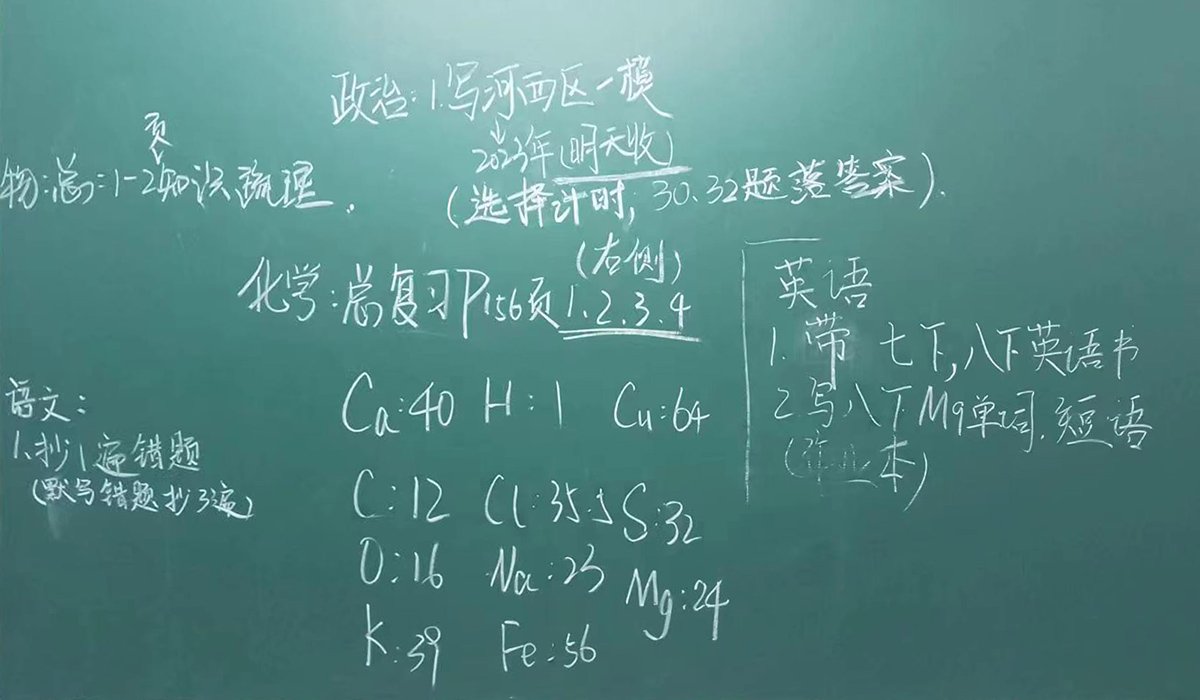 政治:1.写河西区一模
2023年(明天收)
(选择计时,30.32题落答案).
页
物:总:1-2知识梳理.
(右侧)
化学:总复习P156页1.2.3.4
Ca:40 H:1 Cu:64
C:12 Cl:35.5 S:32
O:16 Na:23 Mg:24
K:39 Fe:56
语文:
1.抄1遍错题
(默写错题抄3遍)
英语
1.带 七下,八下英语书
2.写八下M9单词.短语
(作业本)